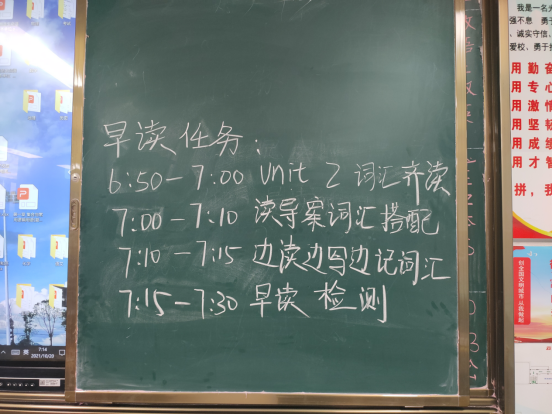 早读任务：
6:50-7:00 Unit 2 词汇齐读
7:00-7:10 读导案词汇搭配
7:10-7:15 边读边写边记词汇
7:15-7:30 早读检测
英
7:14
2021/10/20
我是一名光
强不息 勇于
、诚实守信，
爱校、勇于担
用勤奋
用专心
用激情
用坚韧
用成绩
用才智
拼，我
创全国文明城市 从我做起